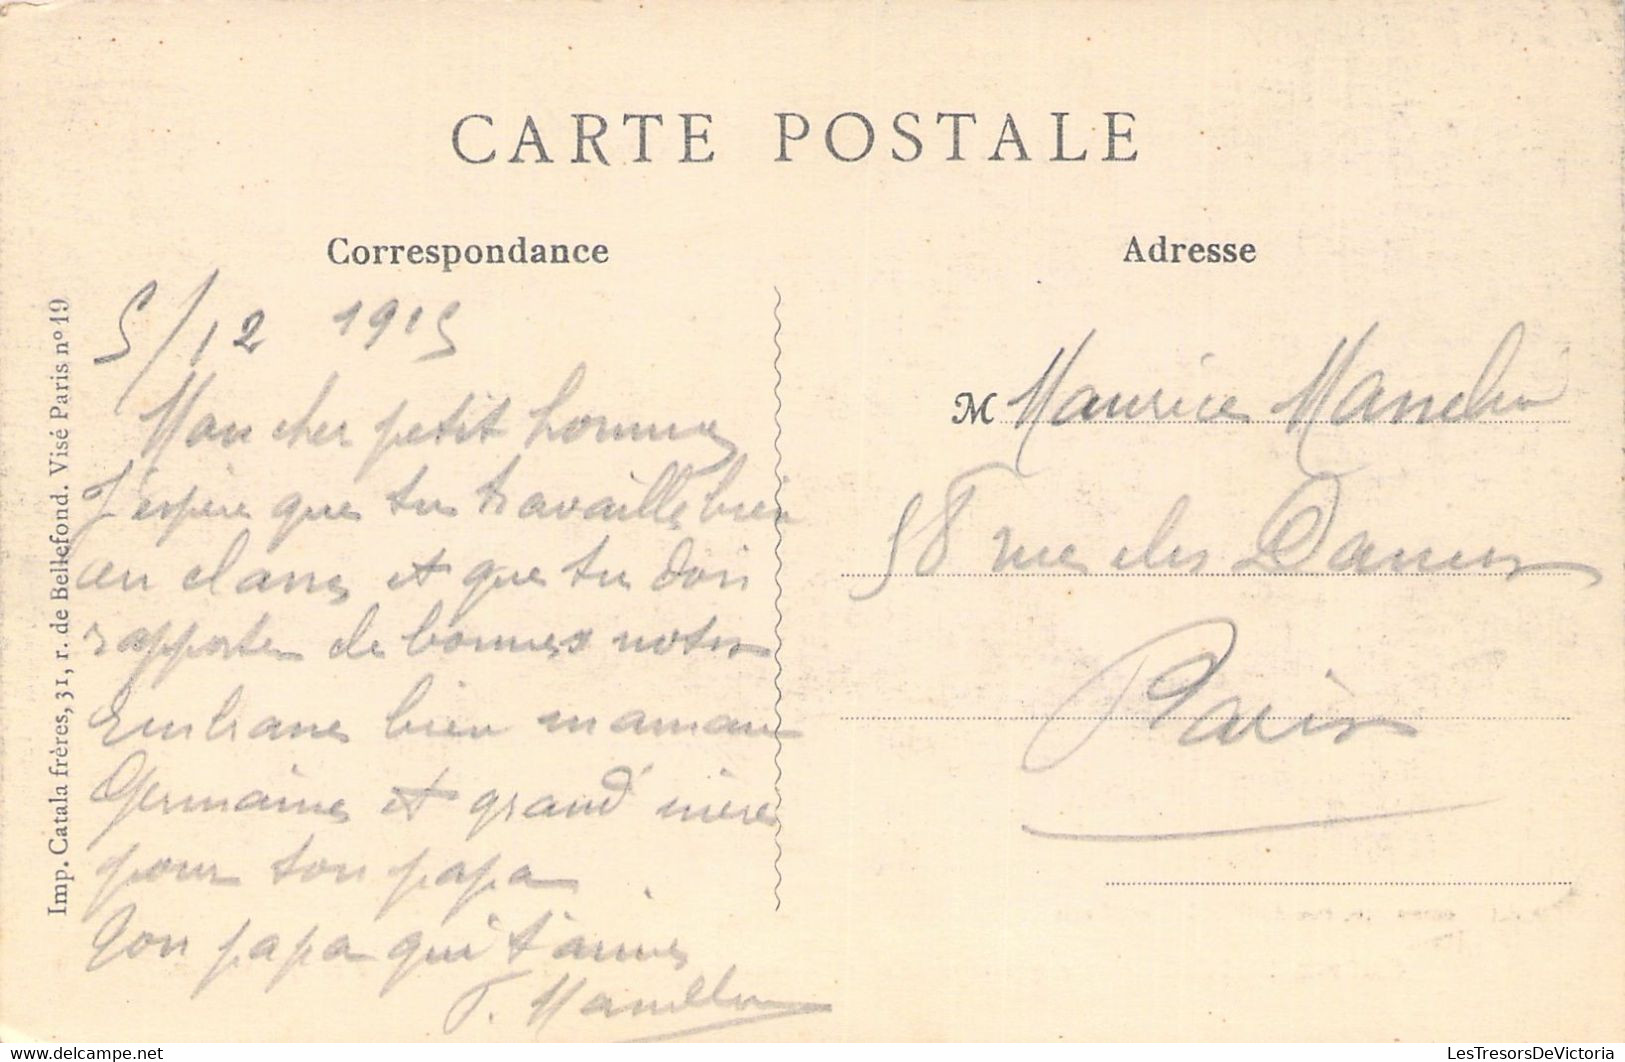 CARTE POSTALE
Correspondance
Adresse
Imp. Catala frères, 31, r. de Bellefond. Visé Paris nº 19
5/12 1915
Mon cher petit homme
J'espère que tu travaille bien
en classe et que tu dois
rapporter de bonnes notes
Embrasse bien maman
Germaine et grand'mère
pour ton papa
Ton papa qui t'aime
M Maurice
58 rue des Dames
Paris
LesTresorsDeVictoria